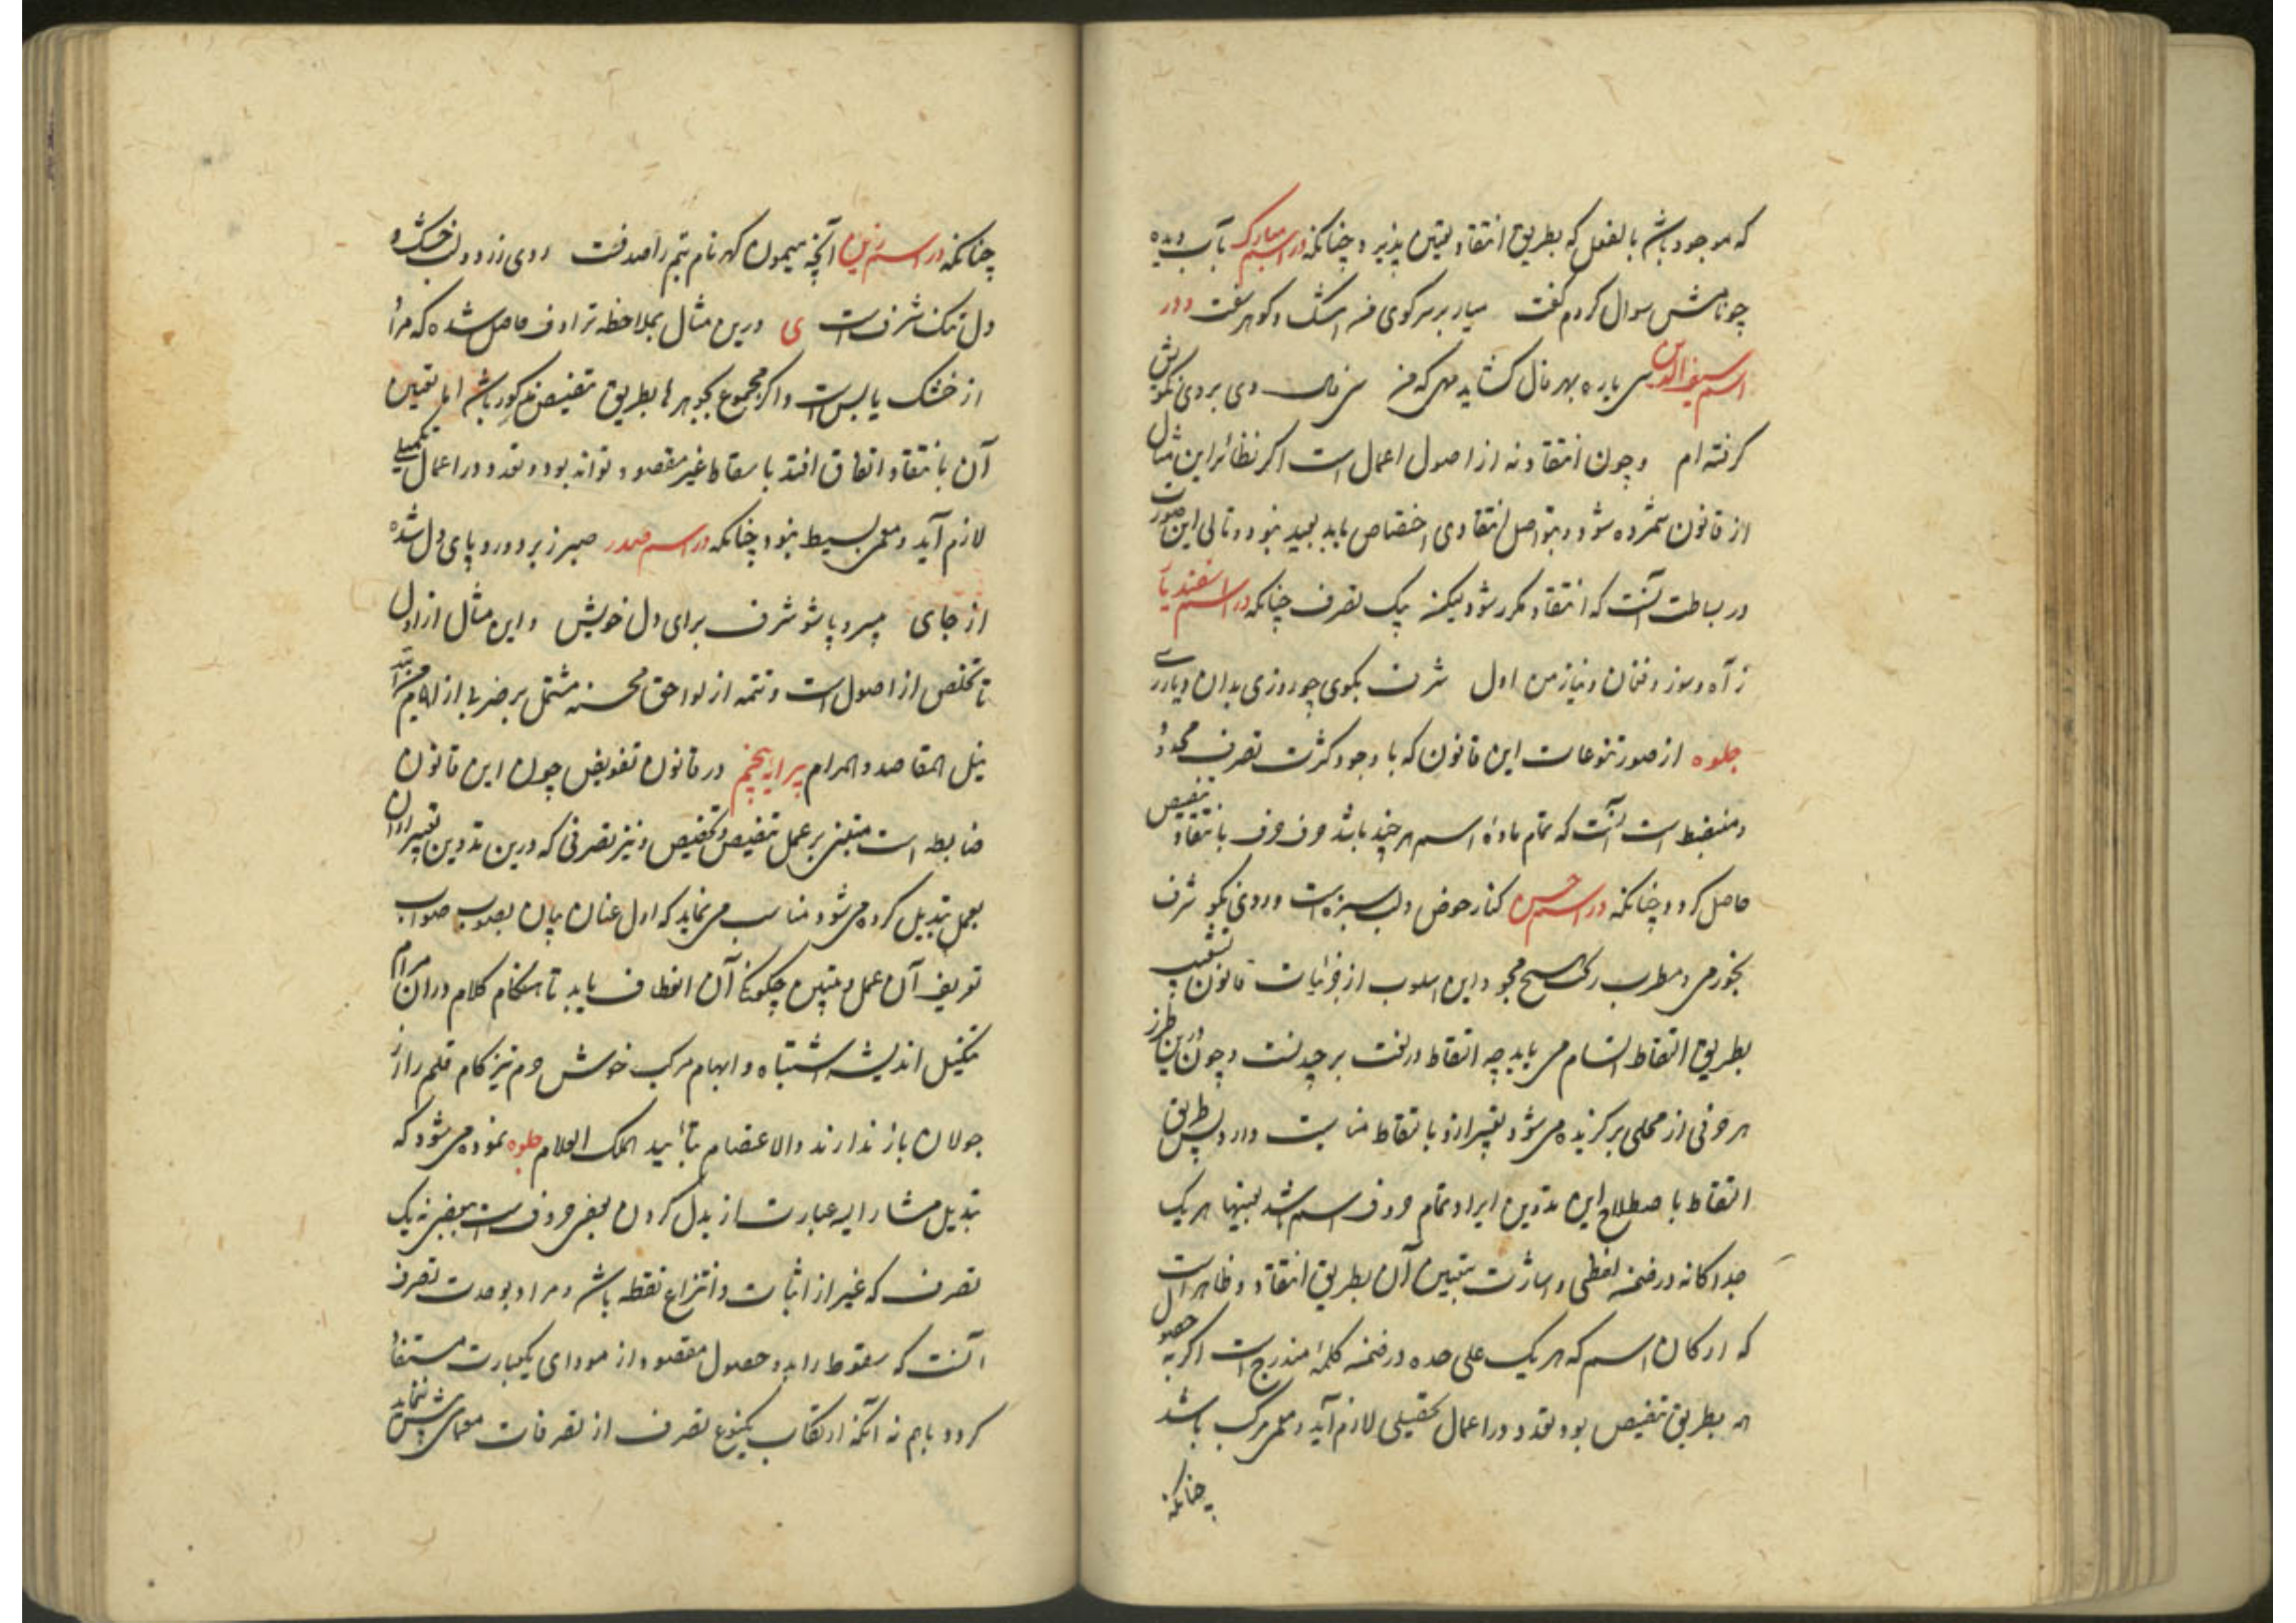 که موجود باشد بالفعل که بطریق انتقاد تعیین پذیرد چنانکه در اسم مبارک بآب دیده
چو نامش سوال کردم گفت بیار بر سر کوی من اشک و گوهر سفت و در
اسم سیف الدین سی پاره بهر فال گشاید مهی که من روی بروی نکویش
گرفته ام و چون انتقاد نه از اصول اعمال است اگر نظائر این مثال
از قانون شمرده شود و بتواصل انتقادی اختصاص یابد بعید نبود و تالی این صورت
در بساطت آنست که انتقاد مکرر شود لیکن بیک تصرف چنانکه در اسم اسفندیار
ز آه و سوز و فغان و نیاز من اول شرف بکوی چو روزی بدان دیار رسی
جلوه از صور تنوعات این قانون که با وجود کثرت تصرف محدود
و منضبط است آنست که تمام مادهٔ اسم هر چند باشد حرف حرف بانتقاد تنصیص
حاصل گردد چنانکه در اسم حسن کنار حوض و لب سبزه است و روی نکو شرف
بخور می و مطرب مجو و این اسلوب از جزئیات قانون تشعیب
بطریق التقاط اتسام می یابد چه التقاط در لغت بر چیدنست و چون درین طرز
هر حرفی از محلی برگزیده می شود تعبیر ازو بالتقاط مناسبت دارد پس طریق
التقاط باصطلاح این تدوین ایراد تمام حروف اسم باشد بعینها هر یک
جداگانه در ضمن لفظی و اشارت بتعیین آن بطریق انتقاد و ظاهر است
که ارکان اسم که هر یک علی حده در ضمن کلمهٔ مندرج است اگر حصول
نه بطریق تنصیص بود تعدد در اعمال تحصیلی لازم آید و معمی مرکب باشد
چنانکه
چنانکه در اسم آنچه میمون گهر نام بتم را صدفست روی زرد و لب خشک و
دل تنگ شرف است ی درین مثال بملاحظه ترادف حاصل شده که مراد
از خشک یابس است و اگر مجموع بجوهرها بطریق تنصیص مذکور باشد اما تعیین
آن بانتقاد اتفاق افتد باسقاط غیر مقصود تواند بود و تعدد در اعمال تکمیلی
لازم آید و معمی بسیط نبود چنانکه در اسم صدر صبر زبر و زیر و پای دل شده
از جای میسر و پا شو شرف برای دل خویش و این مثال از اول
تا تخلص از اصول است و تتمه از لواحق محسنه مشتمل بر ضربی از
نیل المقاصد والمرام پیرایه پنجم در قانون تفویض چون این قانون
ضابطه است مبتنی بر عمل تنصیص و تخصیص و نیز تصرفی که درین تدوین تعبیر از آن
بعمل تبدیل کرده می شود مناسب می نماید که اول عنان بیان بصوب صواب
تعریف آن عمل و تبیین چگونگی آن انعطاف یابد تا هنگام کلام در آن مرام
تخییل اندیشه اشتباه و ابهام مرکب خوش خرم تیز کام قلم را از
جولان باز ندارند والاعتصام بتأیید الملک العلام جلوه نموده می شود که
تبدیل مشار الیه عبارت از بدل کردن بعضی حروف است ببعضی بیک
تصرف که غیر از اثبات و انتزاع نقطه باشد و مراد بوحدت تصرف
آنست که سقوط زاید و حصول مقصود از مودای یکعبارت مستفاد
گردد باهم نه آنکه ارتکاب یکنوع تصرف از تصرفات معمای بیش ننماید